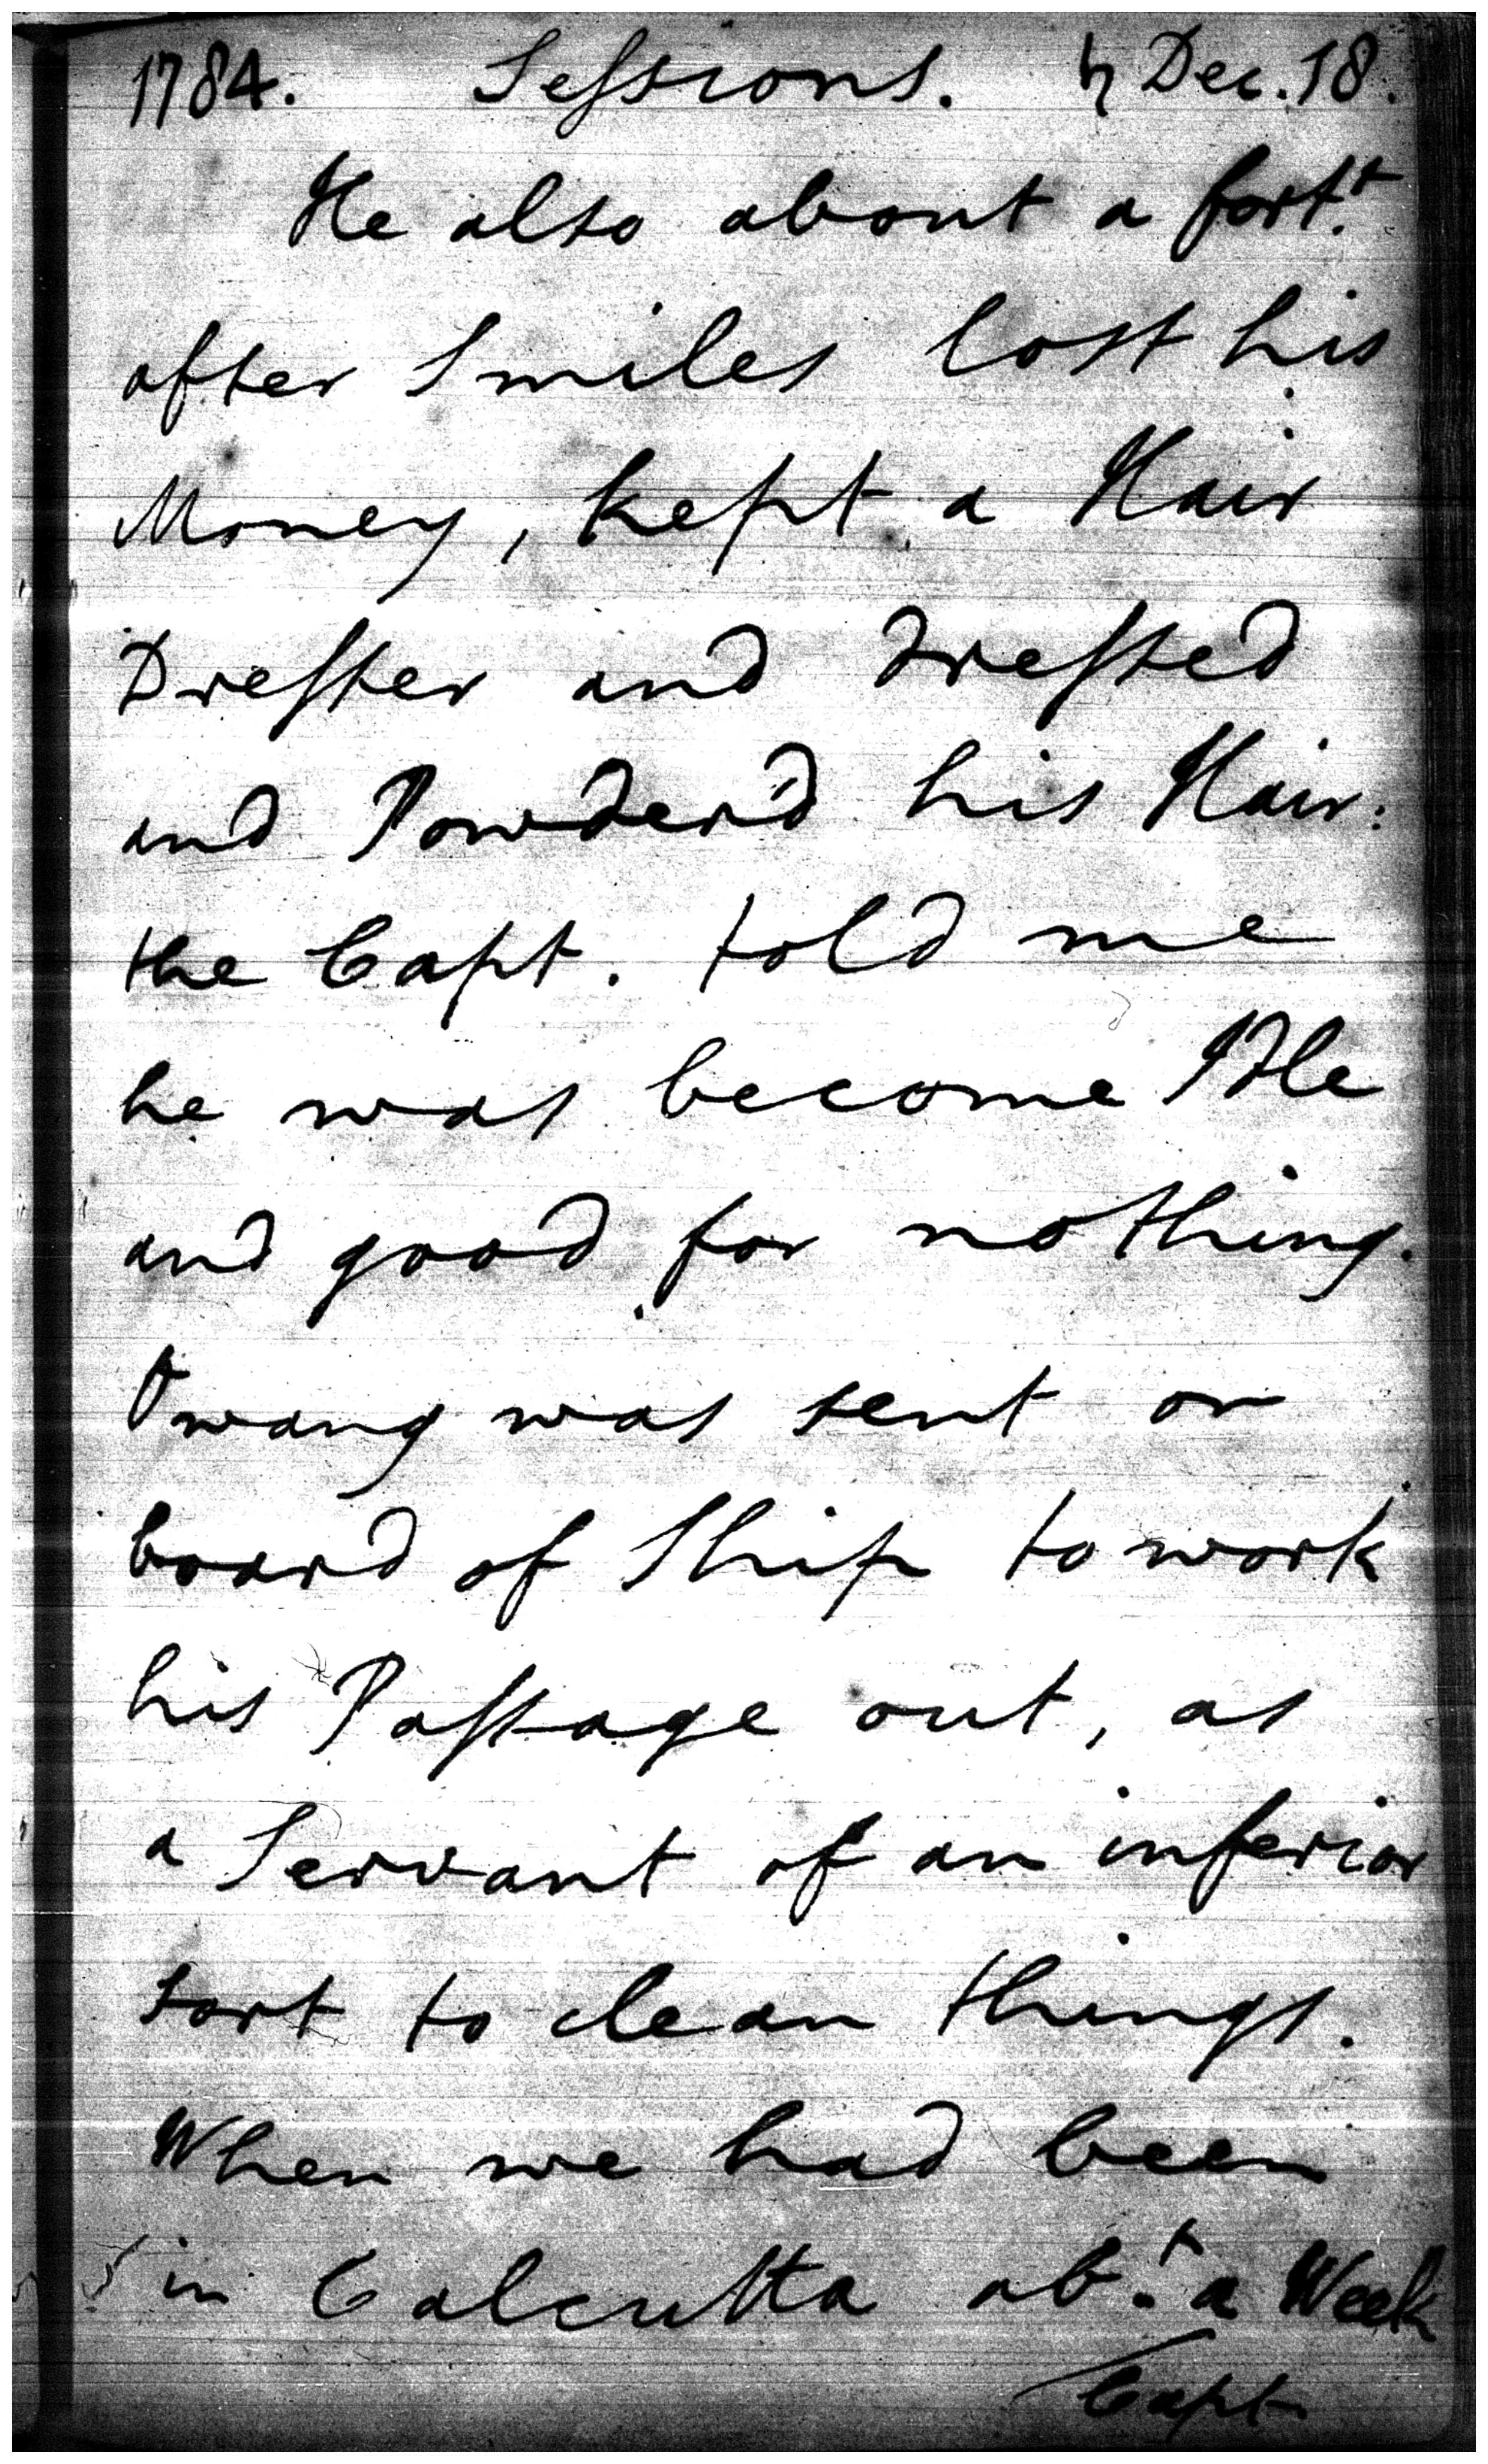 1784. Sessions. ♄ Dec. 18.
He also about a fort.t
after Smiles lost his
Money, kept a Hair
Dresser and dressed
and Powder'd his Hair:
the Capt. told me
he was become Idle
and good for nothing.
Awang was sent on
board of Ship to work
his Passage out, as
a Servant of an inferior
sort to clean things.
When we had been
in Calcutta ab.t a Week
Capt